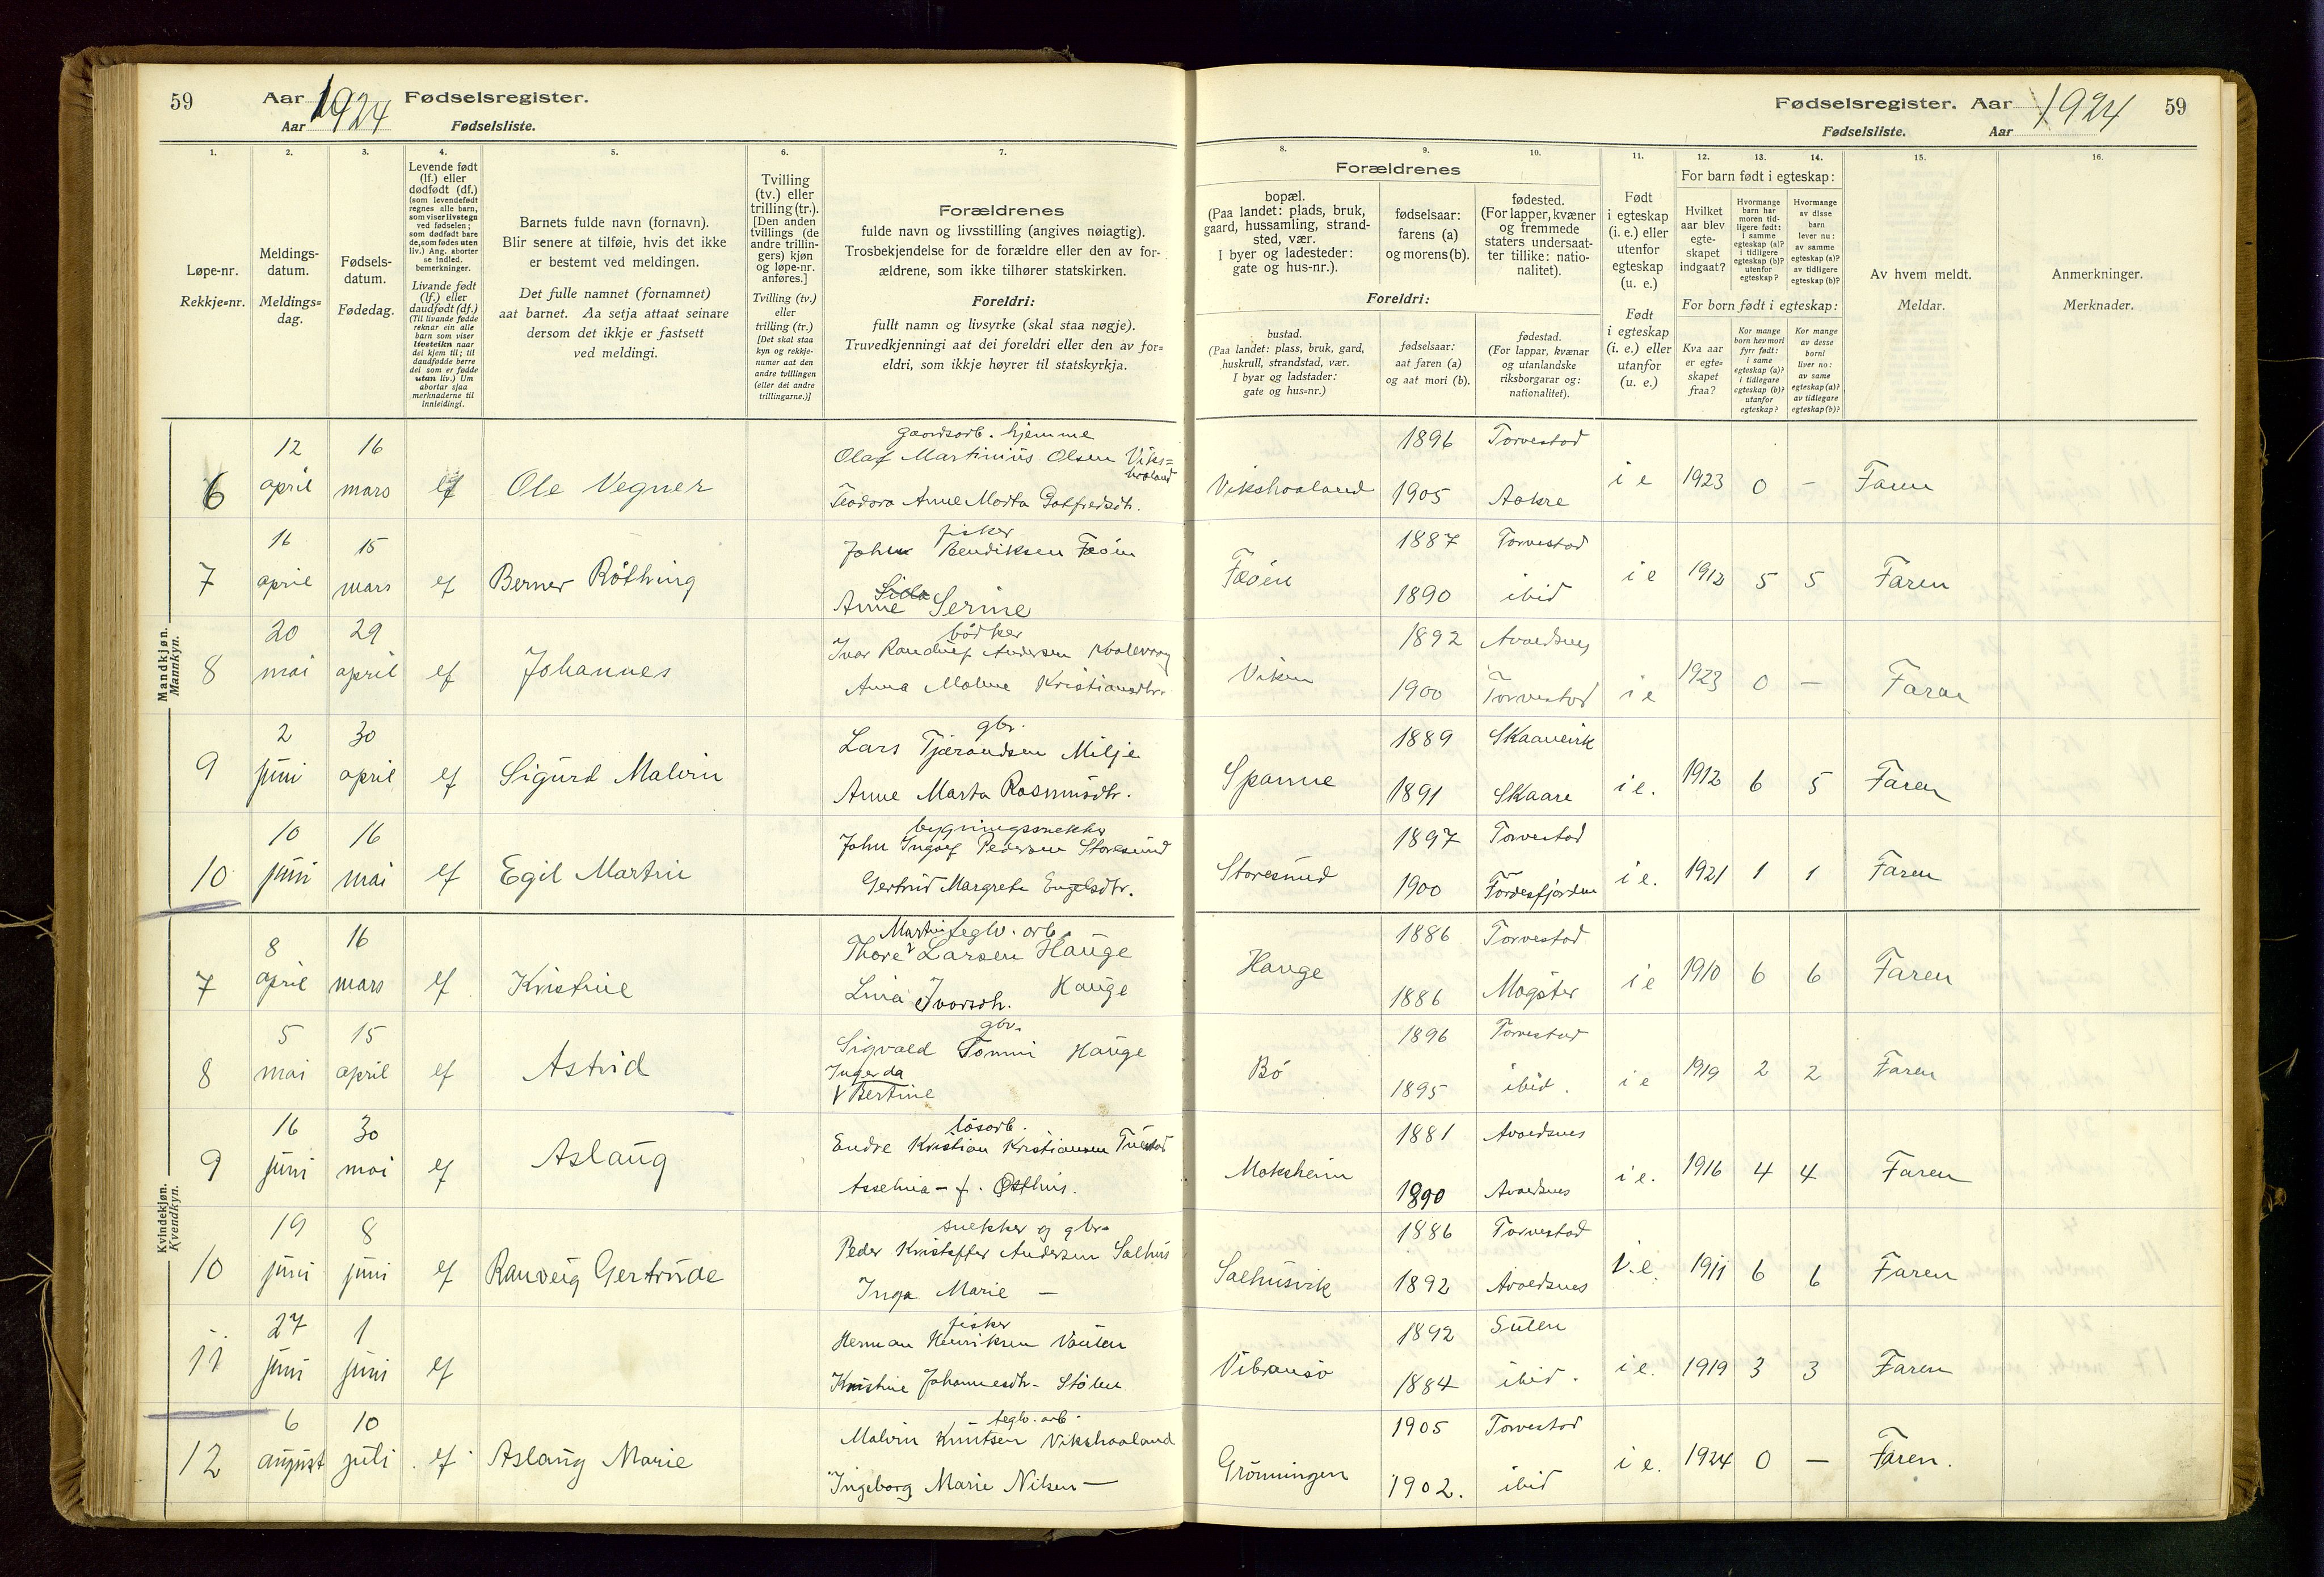 59 Aar 1924 Fødselsregister.
Aar Fødselsliste.
Fødselsregister. Aar 1924 59
Fødselsliste. Aar
1. 2. 3. 4. 5. 6. 7.
Løpe-nr.
Rekkje=nr.
Meldings-
datum.
Meldings=
dag.
Fødsels-
datum.
Fødedag.
Levende født
(lf.) eller
dødfødt (df.)
(som levendefødt
regnes alle barn,
som viser livstegn
ved fødselen;
som dødfødt bare
de, som fødes uten
liv.) Ang. aborter
se indled.
bemerkninger.
Livande født
(lf.) eller
daudfødt (df.)
(Til livande fødde
reknar ein alle
barn som viser
livsteikn naar
dei kjem til; til
daudfødde berre
dei som er fødde
utan liv.) Um
abortar sjaa
merknaderne til
innleidingi.
Barnets fulde navn (fornavn).
Blir senere at tilføie, hvis det ikke
er bestemt ved meldingen.
Det fulle namnet (fornamnet)
aat barnet. Aa setja attaat seinare
dersom det ikkje er fastsett
ved meldingi.
Tvilling
(tv.) eller
trilling (tr.).
[Den anden
tvillings (de
andre trillin-
gers) kjøn
og løpe-nr.
anføres.]
Tvilling (tv.)
eller
trilling (tr.)
[Det skal staa
kyn og rekkje-
numer aat den
andre tvillingen
(eller dei andre
trillingarne.)]
Forældrenes
fulde navn og livsstilling (angives nøiagtig).
Trosbekjendelse for de forældre eller den av for-
ældrene, som ikke tilhører statskirken.
Foreldri:
fullt namn og livsyrke (skal staa nøgje).
Truvedkjenningi aat dei foreldri eller den av for=
eldri, som ikkje høyrer til statskyrkja.
8. 9. 10. 11. 12. 13. 14. 15. 16.
Forældrenes
bopæl.
(Paa landet: plads, bruk,
gaard, hussamling, strand-
sted, vær.
I byer og ladesteder:
gate og hus-nr.).
fødselsaar:
farens (a)
og morens (b).
fødested.
(For lapper, kvæner
og fremmede
staters undersaat-
ter tillike: natio-
nalitet).
Foreldri:
bustad.
(Paa landet: plass, bruk, gard,
huskrull, strandstad, vær.
I byar og ladstader:
gate og hus=nr.)
fødselsaar:
aat faren (a)
og aat mori (b).
fødestad.
(For lappar, kvænar
og utanlandske
riksborgarar og:
nationalitet).
Født
i egteskap
(i. e.) eller
utenfor
egteskap
(u. e.)
Født
i egteskap
(i. e.) eller
utanfor
(u. e.)
For barn født i egteskap:
Hvilket
aar blev
egte-
skapet
indgaat?
Hvormange
barn har
moren tid-
ligere født:
i samme
egteskap (a)?
i tidligere
egteskap (b)?
utenfor
egteskap?
Hvormange
av disse
barn
lever nu:
av samme
egteskap (a)?
av tidligere
egteskap (b)?
For born født i egteskap:
Kva aar
er egte-
skapet
fraa?
Kor mange
born hev mori
fyrr født:
i same
egteskap (a)?
i tidlegare
egteskap (b)?
utanfor
egteskap?
Kor mange
av desse
borni
liver no:
av same
egteskap (a)?
av tidlegare
egteskap (b)?
Av hvem meldt.
Meldar.
Anmerkninger.
Merknader.
Mandkjøn.
Mannkyn.
6 12 april 16 mars lf Ole Vegner
gaardsarb. hjemme
Olaf Martinius Olsen Viks=
haaland
Teodora Anne Marta Gotfredsdtr.
Vikshaaland 1896 Torvestad
1905 Aakre i e 1923 0 – Faren
7 16 april 15 mars lf Berner Röthing
fisker
John Bendiksen Feöin
Anne Serine
Feöen 1887 Torvestad
1890 ibid i e 1912 5 5 Faren
8 20 mai 29 april lf Johannes
bödker
Ivar Randulf Andersen Kvalevaag
Anna Malene Kristiansdtr.
Viken 1892 Avaldsnes
1900 Torvestad i e 1923 0 – Faren
9 2 juni 30 april lf Sigurd Malvin
gbr.
Lars Tjærandsen Milje
Anne Marta Rasmusdtr.
Spanne 1889 Skaanevik
1891 Skaare i e. 1912 6 5 Faren
10 10 juni 16 mai lf Egil Martin
bygningssnekker
John Ingolf Pedersen Storesund
Gertrud Margrete Engelsdtr.
Storesund 1897 Torvestad
1900 Fördesfjorden i e. 1921 1 1 Faren
Kvindekjøn.
Kvendkyn.
7 8 april 16 mars lf Kristine
Martin teglv. arb.
Thore Larsen Hauge
Lina Ivarsdtr. Hauge
Hauge 1886 Torvestad
1886 Mögster i e 1910 6 6 Faren
8 5 mai 15 april lf Astrid
gbr.
Sigvald Tommi Hauge
Ingerda
V Bertine
Bö 1896 Torvestad
1895 ibid. i e 1919 2 2 Faren
9 16 juni 30 mai lf Aslaug
lösarb.
Endre Kristian Kristiansen Tuestad
Asselina – f. Østhus.
Moksheim 1881 Avaldsnes
1890 Avaldsnes i e. 1916 4 4 Faren
10 19 juni 8 juni lf Ranveig Gertrude
snekker og gbr.
Peder Kristoffer Andersen Salhus
Inga Marie –
Salhusvik 1886 Torvestad
1892 Avaldsnes i. e. 1911 6 6 Faren
11 27 juni 1 juni lf
fisker
Herman Henriksen
Kristine Johannesdtr. Stölen
Vibransö 1892 Sulen
1884 ibid. i e. 1919 3 3 Faren
12 6 august 10 juli lf Aslaug Marie
teglv. arb.
Malvin Knutsen Vikshaaland
Ingeborg Marie Nilsen –
Grönningen 1905 Torvestad
1902. ibid i e. 1924 0 – Faren.